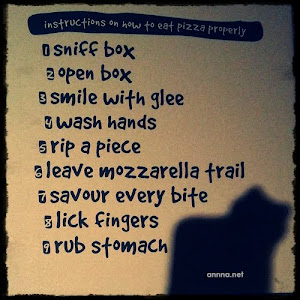 instructions on how to eat pizza properly
1 sniff box
2 open box
3 smile with glee
4 wash hands
5 rip a piece
6 leave mozzarella trail
7 savour every bite
8 lick fingers
9 rub stomach
annna.net